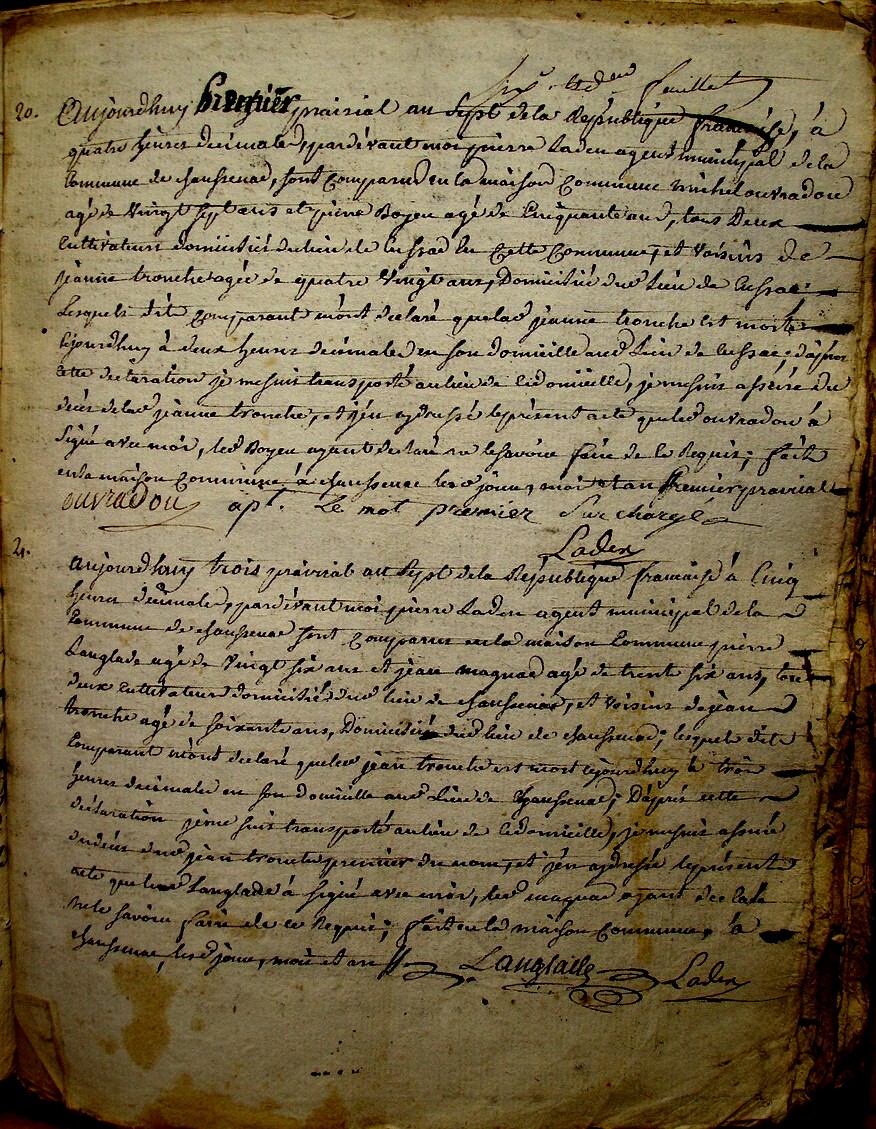 six. feuillet
20. Aujourdhuy Premier prairial an Sept de la République française, á
quatre heures decimales, pardevant moi pierre Laden agent municipal de la
Commune de chaussenac, sont Comparus en la maison Commune michel ouvradou
agé de Vingt sept ans et pierre Boyeu agé de Cinquante ans, tous Deux
Cultivateurs domiciliés du lieu de lussac en Cette Commune, et voisins de
jeanne tronche agée de quatre Vingt ans, Domicilié dud Lieu de lussac
Lesquels dit Comparant m'ont declaré quelad jeanne tronche est morte
ejourdhuy à deux heures decimales en son domicille aud Lieu de lussac; d'après
cette declaration je me suis transporté au lieu de ce domicille, je me suis assuré du
décés delad jeanne tronche, et j'en ay dressé le présent acte queled ouvradou á
signé avec moi, led Boyeu ayant declaré ne le savoir faire de ce Requis; fait
en la maison Commune á chaussenac lesd jour, mois et an premier prairial
ouvradou apt. Le mot premier Surchargé
Laden
21. Aujourdhuy trois prairial an Sept de la République francaise á Cinq
heures decimales, pardevant moi pierre Laden agent municipal de la
Commune de chaussenac sont Comparus en la maison Commune pierre
Langlade agé de Vingt six ans et jean magnac agé de trente six ans, tous
deux cultivateurs domiciliés dud lieu de chaussenac, et Voisins de jean
tronche agé de soixante ans, Domicilié dud lieu de chaussenac; lesquels dits
Comparant m'ont declaré queled jean tronche est mort ejourdhuy á trois
heures decimales en son domicille aud Lieu de chaussenac; D'après cette
declaration je me suis transporté au lieu de ce domicille, je me suis assuré
du décés dud jean tronche premier du nom, et j'en ay dressé le présent
acte queled Langlade á signé avec moi, led magnac ayant declaré
ne le savoir faire de ce Requis; fait en la maison Commune, á
chaussenac, lesd jour, mois et an
Langlade Laden